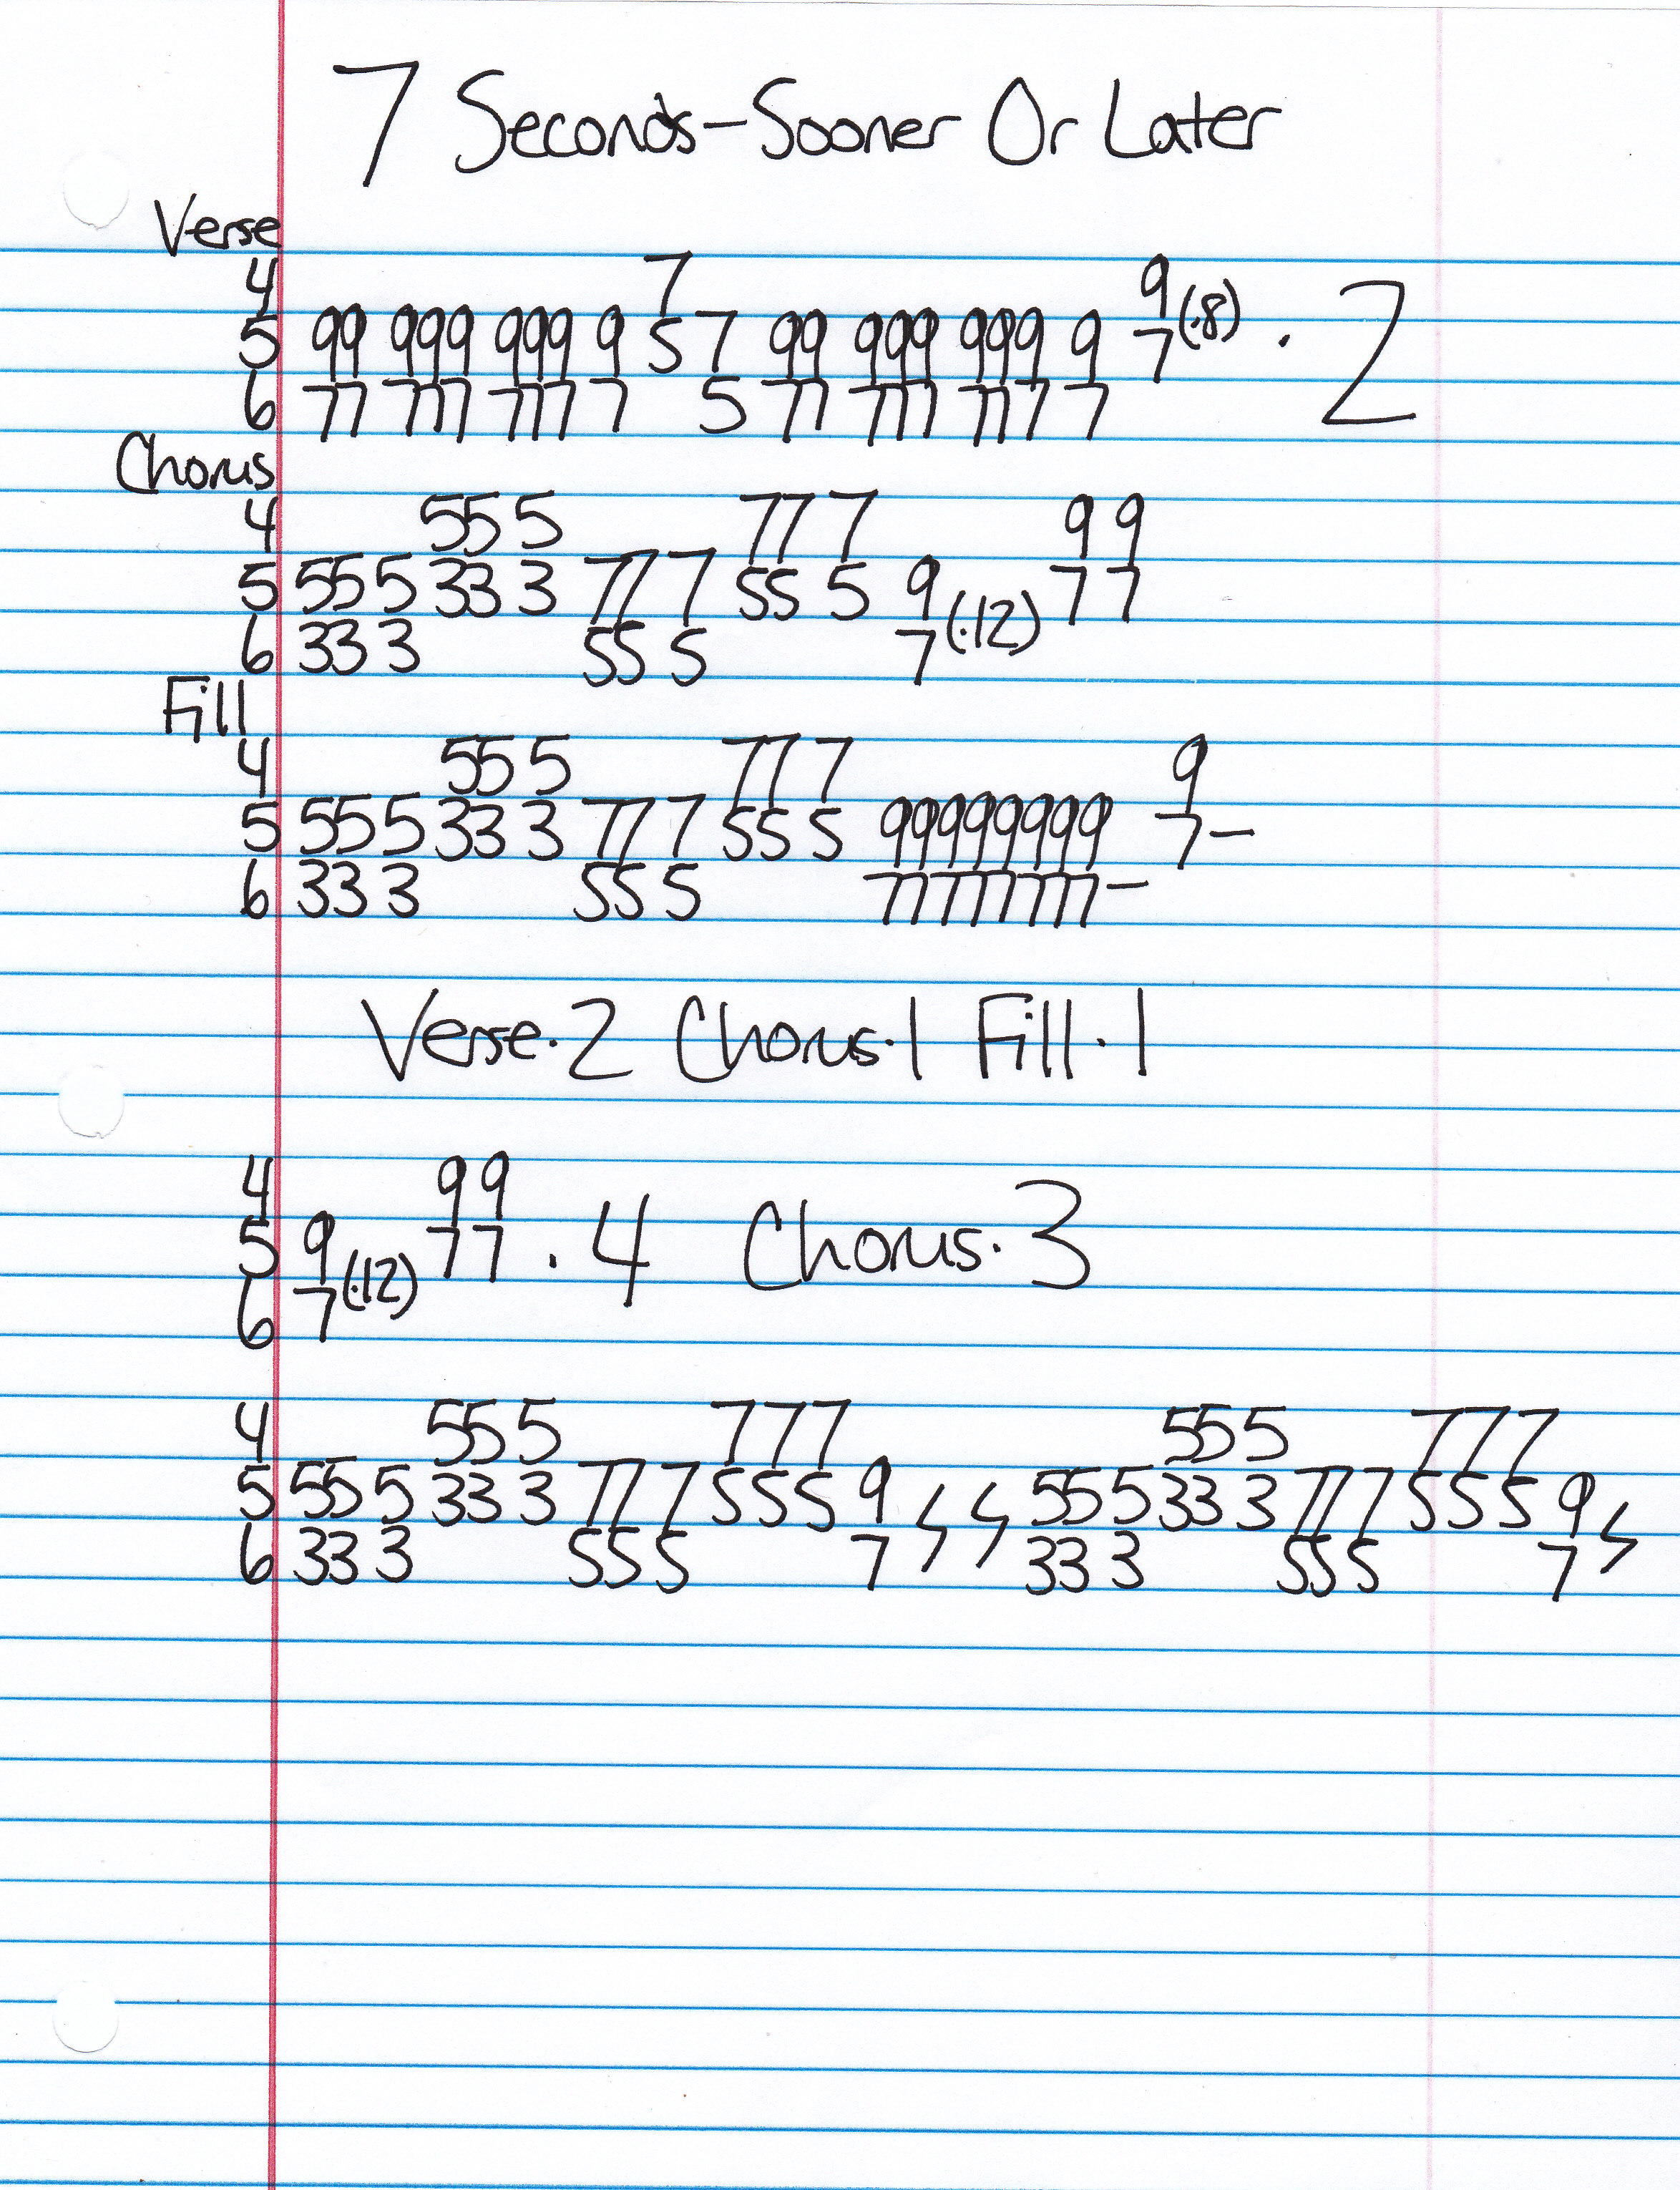 7 Seconds-Sooner Or Later
Verse
4 7 9
5 99 999 999 9 5 7 99 999 999 9 7(·8) · 2
6 77 777 777 7 5 77 777 777 7
Chorus
4 55 5 77 7 9 9
5 55 5 33 3 77 7 55 5 9 7 7
6 33 3 55 5 7(·12)
Fill
4 55 5 77 7 9
5 55 5 33 3 77 7 55 5 99999999 7-
6 33 3 55 5 77777777-
Verse·2 Chorus·1 Fill·1
4 99
5 9 77 · 4 Chorus·3
6 7(·12)
4 55 5 777 555 777
5 55 5 33 3 77 7 555 9 55 5 33 3 77 7 555 9
6 33 3 555 7 33 3 555 7